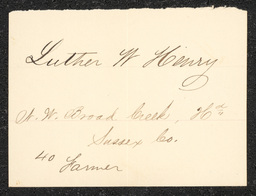 Luther W Henry
N. W. Broad Creek, Hd.
Sussex Co.
40 Farmer